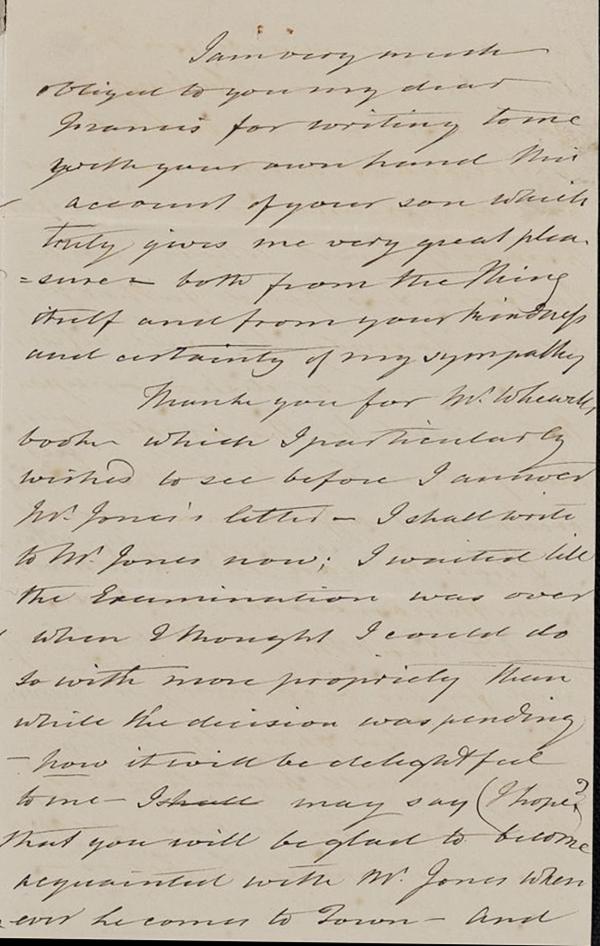 I am very much
obliged to you my dear
Francis for writing to me
with your own hand this
account of your son which
truly gives me very great plea-
=sure - both from the thing
itself and from your kindness
and certainty of my sympathy
Thank you for Mr. Whewell's
book - which I particularly
wished to see before I answer
Mr. Jones's letter - I shall write
to Mr. Jones now; I waited till
the Examination was over
when I thought I could do
so with more propriety than
while the decision was pending
- now it will be delightful
to me - I shall may say (I hope?)
that you will be glad to become
acquainted with Mr. Jones when
- ever he comes to Town - And